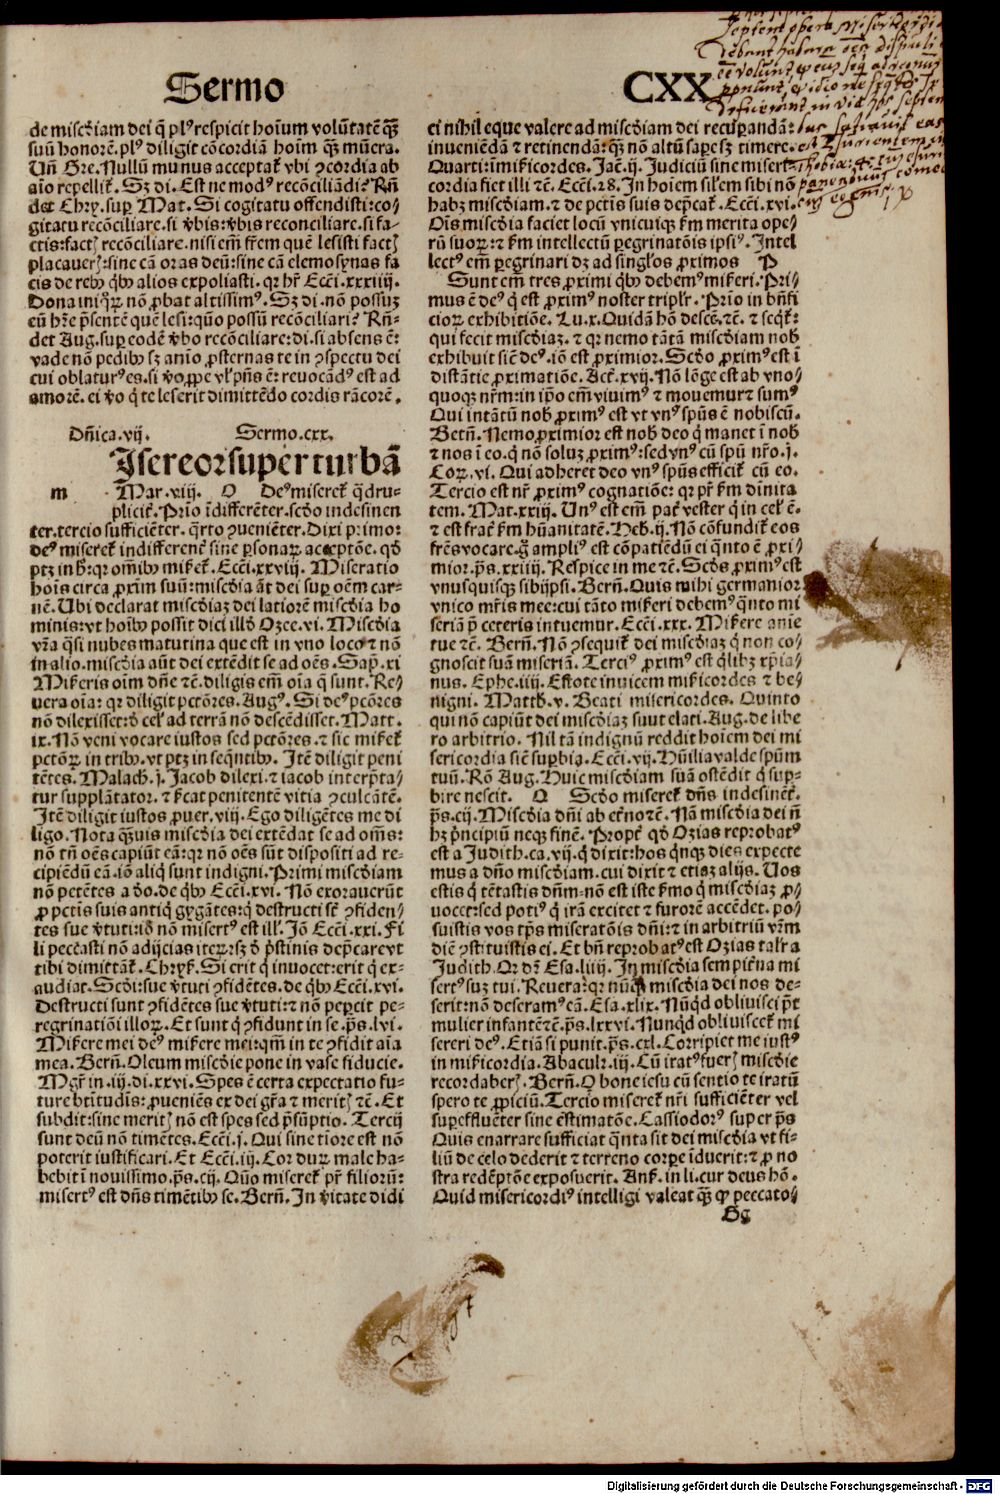 Sermo
CXX
de misc̄diam dei q̄ plꝰ respicit hoīum volūtatē q̄ꝫ
suū honorē. plꝰ diligit cōcordiā hoīm q̄ꝫ mūera.
Vn̄ Gre. Nullū munus acceptat᷑ vbi ꝯcordia ab
aīo repellit᷑. Sꝫ di. Est ne modꝰ recōciliādi? Rn̄
det Chry. suꝑ Mat. Si cogitatu offendisti: co/
gitatu recōciliare. si v̄bis: v̄bis reconciliare. si fa-
ctis: fact᷑ recōciliare. nisi em̄ fr̄em quē lesisti fact᷑
placauer᷑: sine cā oras deū: sine cā elemosynas fa
cis de rebꝰ qͥbꝰ alios expoliasti. qꝛ hr̄ Ecc̄i. xxxiiij.
Dona iniqͦꝝ nō ꝓbat altissimꝰ. Sꝫ di. nō possuꝫ
eū hr̄e p̄sentē quē lesi: quō possū recōciliari? Rn̄-
det Aug. suꝑ eodē v̄bo recōciliare: di. si absens ē:
vade nō pedibꝰ sꝫ anīo ꝓsternas te in ꝯspectu dei
cui oblaturꝰ es. si v̄o ꝓpe vl̓ pn̄s ē: reuocādꝰ est ad
amorē. ei v̄o qͥ te leserit dimittēdo cordis rācorē.
Dn̄ica. vij. Sermo. cxx.
Isereor super turbā
m Mar. viij. O Deꝰ miseret᷑ q̄dru-
plicit᷑. Prīo īdifferēter. scd̄o indesinen
ter. tercio sufficiēter. q̄rto ꝯueniēter. Dixi primo:
deꝰ miseret᷑ indifferent᷑ sine ꝑsonaꝝ acceptōe. qd̓
ptꝫ in h̓: qꝛ om̄ibꝰ mi&#x17F;et᷑. Ecc̄i. xxviij. Miseratio
hoīs circa ꝓxim̄ suū: misc̄dia āt dei suꝑ oēm car-
nē. Ubi declarat misc̄diaꝫ dei latiorē misc̄dia ho
minis: vt hoībꝰ possit dici illd̓ Ozee. vi. Misc̄dia
vr̄a qͣsi nubes matutina que est in vno loco ⁊ nō
in alio. misc̄dia aūt dei extēdit se ad oēs. Sap̄. xi
Miſeris oīm dn̄e ⁊c̄. diligis em̄ oīa q̄ sunt. Re/
uera oīa: qꝛ diligit pctōres. Augꝰ. Si deꝰ pctōres
nō dilexisset: d̓ cel̓ ad terrā nō descēdisset. Matt.
ix. Nō veni vocare iustos sed pctōres. ⁊ sic miſet᷑
pctōꝝ in tribꝰ. vt ptꝫ in seq̄ntibꝰ. Itē diligit peni
tētes. Malach. j. Jacob dilexi. ⁊ iacob interp̄ta/
tur supplātator. ⁊ ſcat penitentē vitia ꝯculcātē.
Itē diligit iustos ꝓuer. viij. Ego diligētes me di
ligo. Nota q̄ꝫuis misc̄dia dei extēdat se ad om̄s:
nō tn̄ oēs capiūt eā: qꝛ nō oēs sūt dispositi ad re-
cipiēdū eā. iō aliqͥ sunt indigni. Primi misc̄diam
nō petētes a d̓o. de qͥbꝰ Ecc̄i. xvi. Nō exorauerūt
ꝓ pctīs suis antiqͥ gygātes: qͥ destructi st̄ ꝯfiden/
tes sue v̓tuti: iō nō misertꝰ est ill̓. Jō Ecc̄i. xxi. Fi
li peccasti nō adijcias iteꝝ: sꝫ ⁊ d̓ p̄stinis dep̄care vt
tibi dimittāt᷑. Chryſ. Si erit qͥ inuocet: erit qͥ ex-
audiat. Scd̄i: sue v̓tuti ꝯfidētes. de qͥbꝰ Ecc̄i. xvi.
Destructi sunt ꝯfidētes sue v̓tuti: ⁊ nō peꝑcit pe-
regrinatiōi illoꝝ. Et sunt qͥ ꝯfidunt in se. p̄s. lvi.
Miſere mei deꝰ miſere mei: qm̄ in te ꝯfidit aīa
mea. Bern̄. Oleum misc̄die pone in vase fiducie.
Mgr̄ in. iij. di. xxvi. Spes ē certa expectatio fu-
ture btītudīs: ꝓueniēs ex dei gr̄a ⁊ merit᷑ ⁊c̄. Et
subdit: sine merit᷑ nō est spes sed p̄sūptio. Tercij
sunt deū nō timētes. Ecc̄i. j. Qui sine tiore est nō
poterit iustificari. Et Ecc̄i. iij. Cor duꝝ male ha-
bebit ī novissimo. p̄s. cij. Quō miseret᷑ pr̄ filioꝝ:
misertꝰ est dn̄s timētibꝰ se. Bern̄. In v̓itate didi
ci nihil eque valere ad misc̄diam dei recuꝑandā:
inueniēdā ⁊ retinendā: q̄ꝫ nō altū saꝑe sꝫ timere.
Quarti: īmiſicordes. Jac̄. ij. Judiciū sine miseri-
cordia fiet illi ⁊c̄. Ecc̄i. 28. In hoīem sil̓em sibi nō
habꝫ misc̄diam. ⁊ de pctīs suis dep̄cat᷑. Ecc̄i. xvi.
Oīs misc̄dia faciet locū vnicuiqꝫ ſm merita ope-
rū suoꝝ: ⁊ ſm intellectū ꝑegrinatōis ipsiꝰ. Intel
lectꝰ em̄ ꝑegrinari dꝫ ad singl̓os ꝓximos P
Sunt em̄ tres ꝓximi qͥbꝰ debemꝰ miſeri. Pri/
mus ē deꝰ qͥ est ꝓximꝰ noster tripl̓r. Prīo in bn̄fi
cioꝝ exhibitiōe. Lu. x. Quidā hō descē. ⁊c̄. ⁊ seqͥt᷑:
qui fecit misc̄diaꝫ. ⁊ qꝛ nemo tātā misc̄diam nob̓
exhibuit sic̄ deꝰ. iō est ꝓximior. Scd̄o ꝓximꝰ est ī
distātie ꝓximatiōe. Act᷑. xvij. Nō lōge est ab vno/
quoqꝫ nr̄m: in ip̄o em̄ viuimꝰ ⁊ mouemur ⁊ sumꝰ
Qui intātū nob̓ ꝓximꝰ est vt vnꝰ spūs ē nobiscū.
Bern̄. Nemo ꝓximior est nob̓ deo qͥ manet ī nob̓
⁊ nos ī eo. qͥ nō soluꝫ ꝓximꝰ: sed vnꝰ cū spū nr̄o. j.
Coꝝ. vi. Qui adheret deo vnꝰ spūs efficit᷑ cū eo.
Tercio est nr̄ ꝓximꝰ cognatiōe: qꝛ pr̄ ſm dīnita
tem. Mat. xxiij. Vnꝰ est em̄ pat᷑ vester qͥ in cel̓ ē.
⁊ est frat᷑ ſm hūanitatē. Heb. ij. Nō cōfundit᷑ eos
fr̄es vocare. gͦ ampliꝰ est cōpatiēdū ei qͣnto ē ꝓxi/
mior. p̄s. xxiiij. Respice in me ⁊c̄. Scd̓s ꝓximꝰ est
vnusquisqꝫ sibijpsi. Bern̄. Quis mihi germanior
vnico mr̄is mee: cui tāto miſeri debemꝰ qͣnto mi
seriā p̄ ceteris intuemur. Ecc̄i. xxx. Miſere anie
tue ⁊c̄. Bern̄. Nō ꝯsequit᷑ dei misc̄diaꝫ qͥ non co/
gnoscit suā miseriā. Terciꝰ ꝓximꝰ est qͥlibꝫ xp̄ia/
nus. Ephe. iiij. Estote inuicem miſicordes ⁊ be/
nigni. Matth. v. Beati misericordes. Quinto
qui nō capiūt dei misc̄diaꝫ sunt elati. Aug. de libe
ro arbitrio. Nil tā indignū reddit hoīem dei mi
sericordia sic̄ suꝑbia. Ecc̄i. vij. Hūilia valde spūm
tuū. Rō Aug. Huic misc̄diam suā ostēdit qͥ suꝑ-
bire nescit. Q Scd̄o miseret᷑ dn̄s indesinēt᷑.
p̄s. cij. Misc̄dia dn̄i ab et̓no ⁊c̄. Nā misc̄dia dei n̄
hꝫ pͥncipiū neqꝫ finē. Propt᷑ qd̓ Ozias reprobatꝰ
est a Judith. ca. vij. qͥ dixit: hos qͥnqꝫ dies expecte
mus a dn̄o misc̄diam. cui dixit ⁊ etiaꝫ alijs. Vos
estis qͥ tētastis dn̄m: nō est iste ſmo qͥ misc̄diaꝫ ꝓ/
uocet: sed potiꝰ qͥ irā excitet ⁊ furorē accēdet. po/
suistis vos tp̄s miseratōis dn̄i: ⁊ in arbitriū vr̄m
diē ꝯstituistis ei. Et bn̄ reprobatꝰ est Ozias tal̓r a
Judith. Qꝛ dꝛ̄ Esa. liiij. In misc̄dia sempit̓na mi
sertꝰ suꝫ tui. Reuera: qꝛ nūqͣꝫ misc̄dia dei nos de-
serit: nō deseramꝰ eā. Esa. xlix. Nūqͥd obliuisci pt̄
mulier infantē ⁊c̄. p̄s. lxxvi. Nunqͥd obliuiscet᷑ mi
sereri deꝰ. Etiā si punit. p̄s. cxl. Corripiet me iustꝰ
in miſicordia. Abacuk. iij. Cū iratꝰ fuer᷑ misc̄die
recordaber᷑. Bern̄. O bone iesu cū sentio te iratū
spero te ꝓpiciū. Tercio miseret᷑ nr̄i sufficiēter vel
suꝑeffluēter sine estimatōe. Cassiodorꝰ super p̄s
Quis enarrare sufficiat qͣnta sit dei misc̄dia vt fi-
liū de celo dederit ⁊ terreno corꝑe īduerit: ⁊ ꝓ no
stra redēptōe exposuerit. Anſ. in li. cur deus hō.
Quid misericordiꝰ intelligi valeat q̄ꝫ ꝙ peccato/
Gg
Digitalisierung gefördert durch die Deutsche Forschungsgemeinschaft - DFG